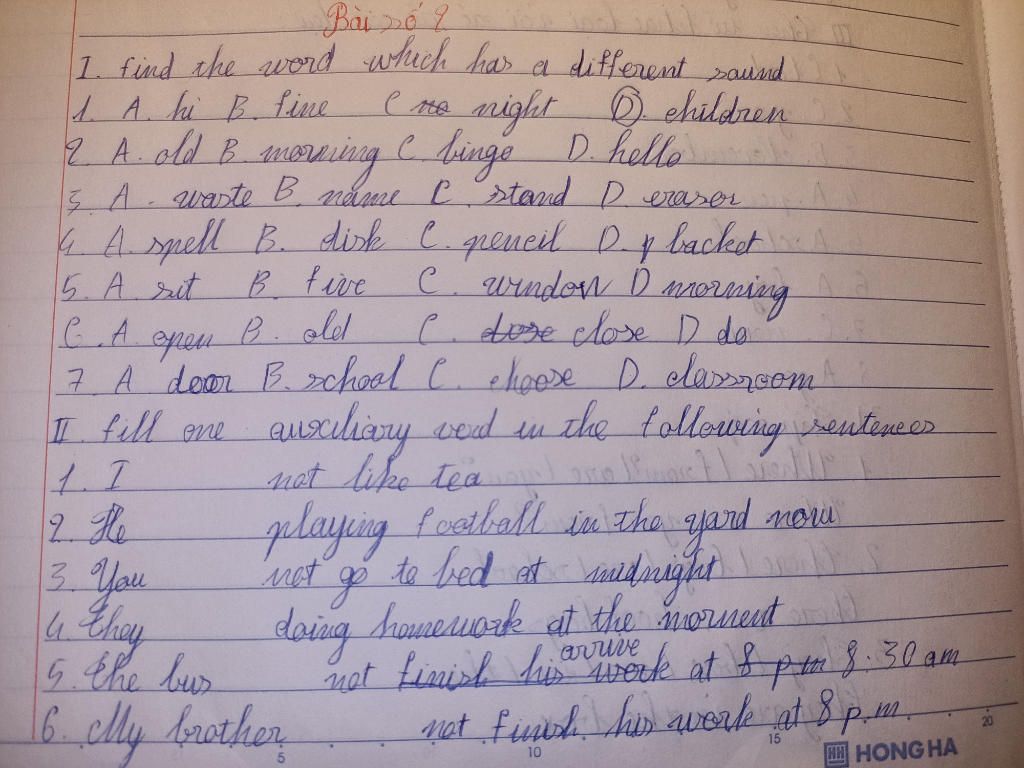 Bài số 2
I. find the word which has a different sound
1. A. hi B. fine C no night D. children
2. A. old B. morning C. bingo D. hello
3. A. waste B. name C. stand D. eraser
4. A. spell B. disk C. pencil D. packet
5. A sit B. five C. window D morning
6. A. open B. old C. dose close D do
7 A door B. school C. choose D. classroom
II. fill one auxiliary verd in the following sentences
1. I not like tea
2. He playing football in the yard now
3. You not go to bed at midnight
4. they doing homework at the morment
arrive
5. the bus not finish his work at 8 p m 8:30 am
6. My brother not finish his work at 8 p.m
5 10 15 20
HONG HA